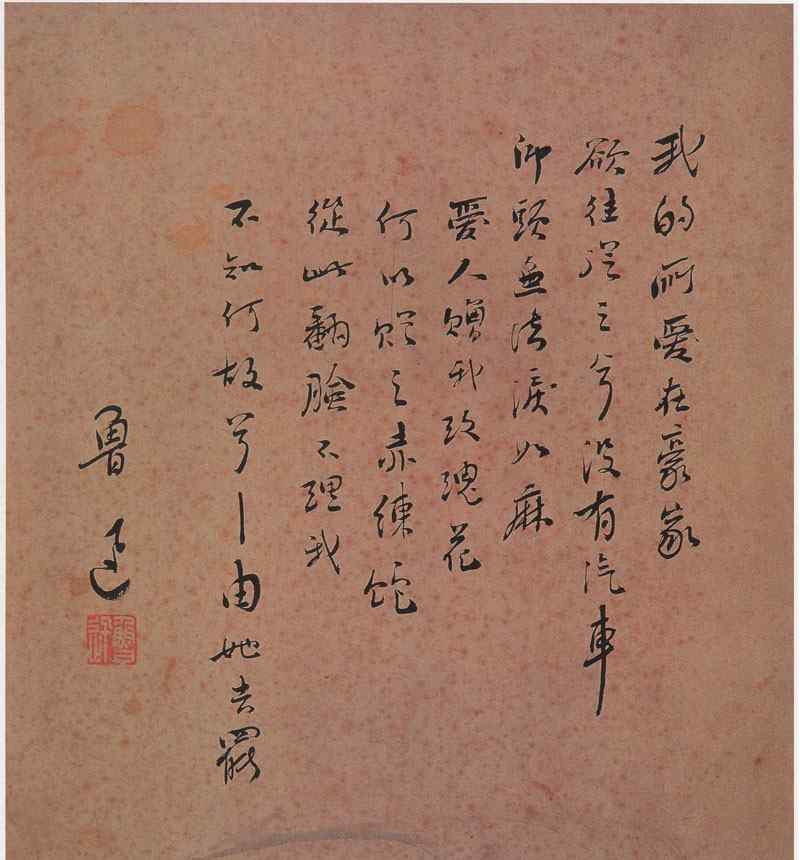 我的所愛在豪家
欲往從之兮没有汽車
仰頭無法淚如麻
愛人贈我玫瑰花
何以贈之赤練蛇
從此翻臉不理我
不知何故兮—由她去罷
魯迅
魯迅